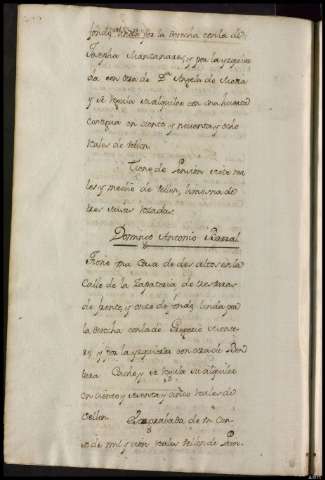 fondo, linda por la derecha con la de
Josepha Manzanares, y por la yzquier
da con otra de D.ª Angela de Mota
y se regula su alquiler con una huerta
contigua en ciento y noventa y ocho
reales de vellon
Tiene de Pension siete rea
les y medio de vellon, limosna de
tres misas rezadas
Domingo Antonio
Tiene una Casa de dos altos en la
Calle de la Zapateria de tres varas
de frente, y once de fondo, linda por
la derecha con la de Gregorio Monte
y por la yzquierda con otra de Ven
tura y se regula su alquiler
en ciento y setenta y cinco reales de
vellon
de un Cen
so de mil y cien reales vellon de Prin